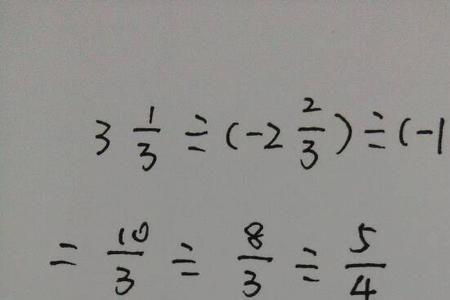 3 1/3 ÷ (-2 2/3) ÷ (-1
= 10/3 ÷ 8/3 ÷ 5/4